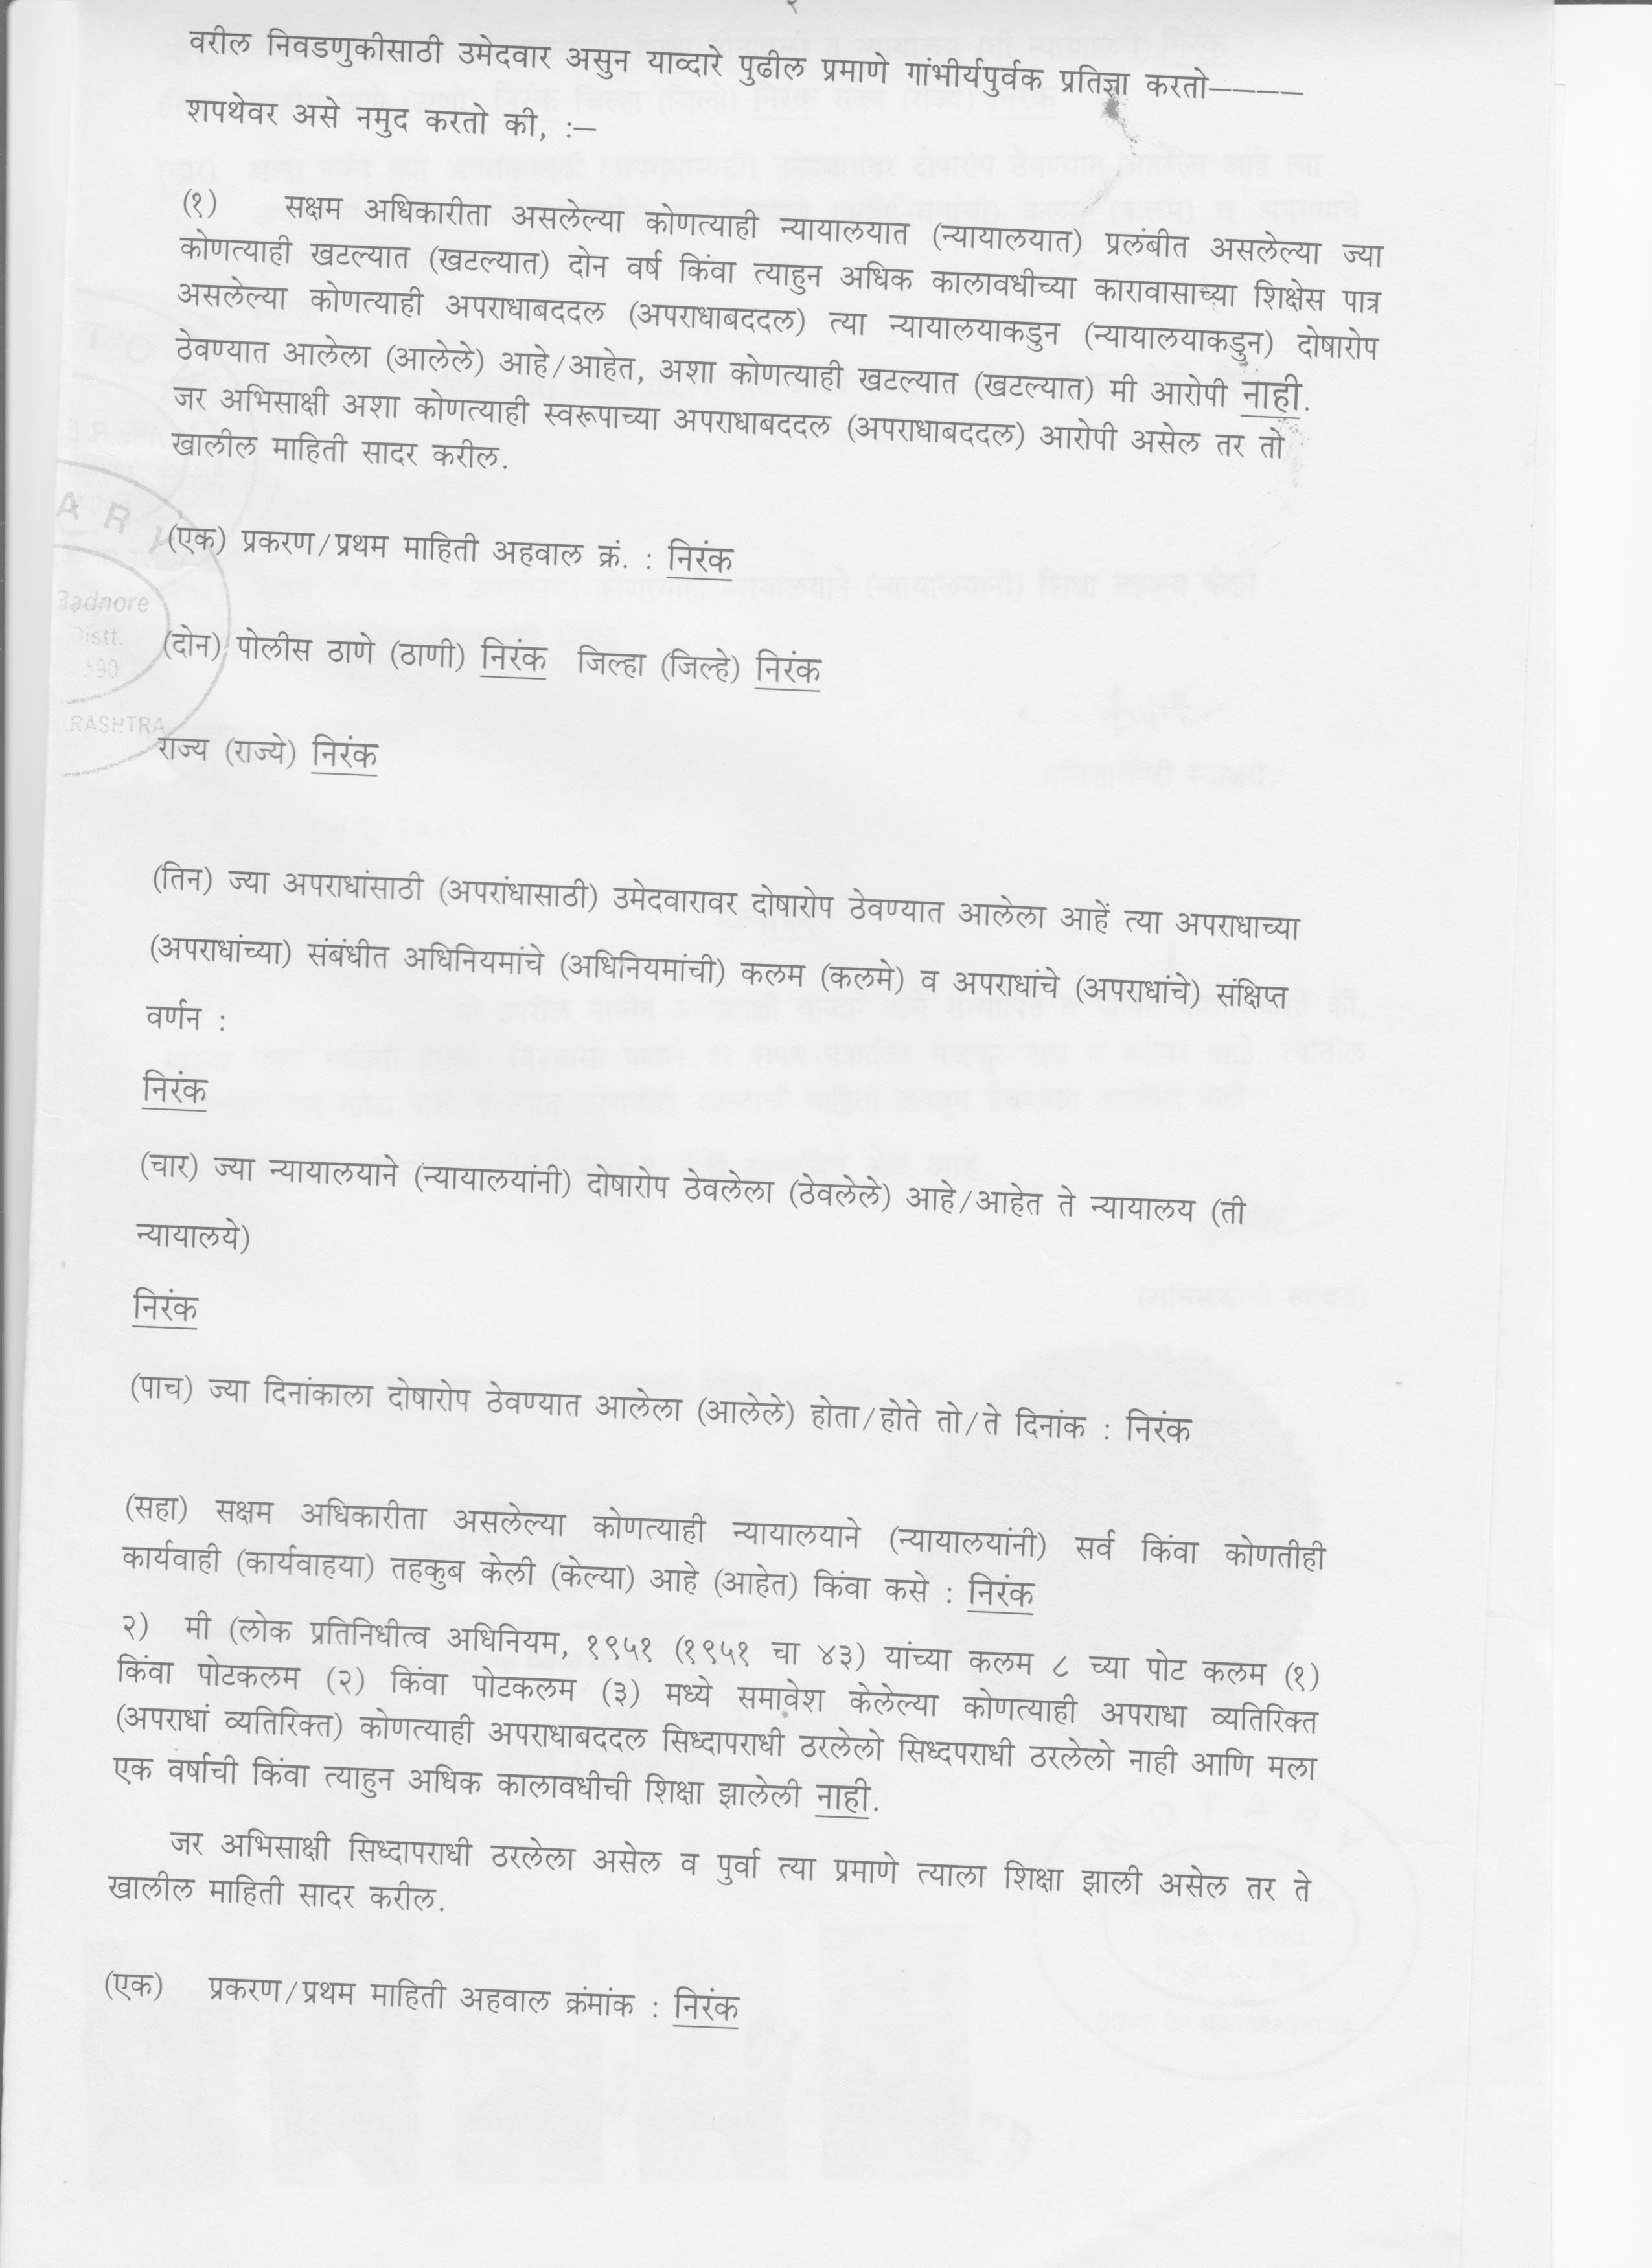 वरील निवडणुकीसाठी उमेदवार असुन याव्दारे पुढील प्रमाणे गांभीर्यपुर्वक प्रतिज्ञा करतो————
शपथेवर असे नमुद करतो की, :—
(१) सक्षम अधिकारीता असलेल्या कोणत्याही न्यायालयात (न्यायालयात) प्रलंबीत असलेल्या ज्या
कोणत्याही खटल्यात (खटल्यात) दोन वर्ष किंवा त्याहुन अधिक कालावधीच्या कारावासाच्या शिक्षेस पात्र
असलेल्या कोणत्याही अपराधाबददल (अपराधाबददल) त्या न्यायालयाकडुन (न्यायालयाकडुन) दोषारोप
ठेवण्यात आलेला (आलेले) आहे/आहेत, अशा कोणत्याही खटल्यात (खटल्यात) मी आरोपी नाही.
जर अभिसाक्षी अशा कोणत्याही स्वरूपाच्या अपराधाबददल (अपराधाबददल) आरोपी असेल तर तो
खालील माहिती सादर करील.
A R Y
(एक) प्रकरण/प्रथम माहिती अहवाल क्रं. : निरंक
Badnore
Distt.
(दोन) पोलीस ठाणे (ठाणी) निरंक जिल्हा (जिल्हे) निरंक
RASHTRA
राज्य (राज्ये) निरंक
(तिन) ज्या अपराधांसाठी (अपरांधासाठी) उमेदवारावर दोषारोप ठेवण्यात आलेला आहें त्या अपराधाच्या
(अपराधांच्या) संबंधीत अधिनियमांचे (अधिनियमांची) कलम (कलमे) व अपराधांचे (अपराधांचे) संक्षिप्त
वर्णन :
निरंक
(चार) ज्या न्यायालयाने (न्यायालयांनी) दोषारोप ठेवलेला (ठेवलेले) आहे/आहेत ते न्यायालय (ती
न्यायालये)
निरंक
(पाच) ज्या दिनांकाला दोषारोप ठेवण्यात आलेला (आलेले) होता/होते तो/ते दिनांक : निरंक
(सहा) सक्षम अधिकारीता असलेल्या कोणत्याही न्यायालयाने (न्यायालयांनी) सर्व किंवा कोणतीही
कार्यवाही (कार्यवाहया) तहकुब केली (केल्या) आहे (आहेत) किंवा कसे : निरंक
२) मी (लोक प्रतिनिधीत्व अधिनियम, १९५१ (१९५१ चा ४३) यांच्या कलम ८ च्या पोट कलम (१)
किंवा पोटकलम (२) किंवा पोटकलम (३) मध्ये समावेश केलेल्या कोणत्याही अपराधा व्यतिरिक्त
(अपराधां व्यतिरिक्त) कोणत्याही अपराधाबददल सिध्दापराधी ठरलेलो सिध्दपराधी ठरलेलो नाही आणि मला
एक वर्षाची किंवा त्याहुन अधिक कालावधीची शिक्षा झालेली नाही.
जर अभिसाक्षी सिध्दापराधी ठरलेला असेल व पुर्वा त्या प्रमाणे त्याला शिक्षा झाली असेल तर ते
खालील माहिती सादर करील.
(एक) प्रकरण/प्रथम माहिती अहवाल क्रंमांक : निरंक